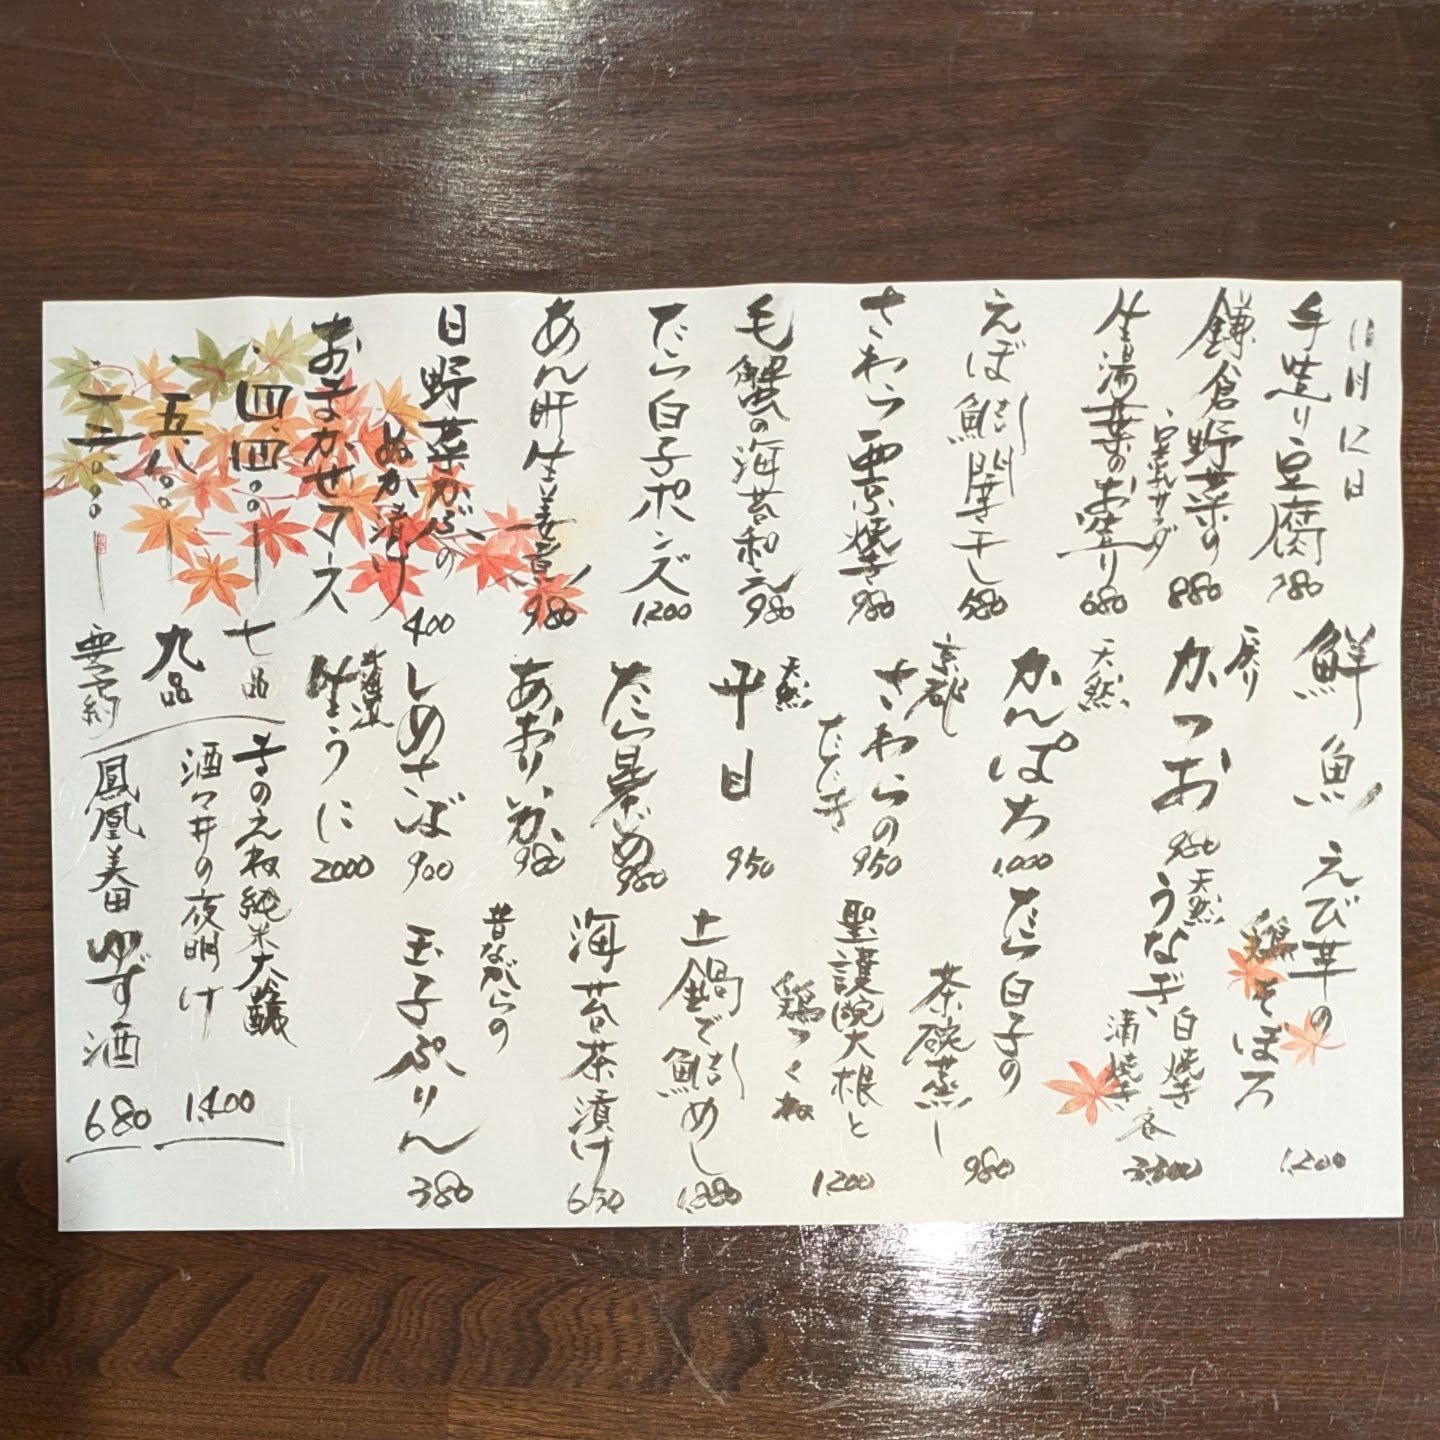 11月12日
手造り豆腐 780
鎌倉野菜の
豆乳サラダ 880
生湯葉のお造り 680
えぼ鯛開き干し 580
さわら西京焼き 980
毛蟹の海苔和え 980
たら白子ポンズ 1,200
あん肝生姜煮 980
日野菜かぶの
ぬか漬け 400
おまかせコース
四.四〇〇
五.八〇〇
一二.〇〇〇
七品
九品
要予約
鮮魚
戻り
かつお 980
天然
かんぱち 1,000
京都
さわらの
たたき 950
天然
平目 950
たら昆〆 980
あおりいか 980
しめさば 900
北海道
生うに 2000
えび芋の
鶏そぼろ 1,200
天然
うなぎ 白焼き
蒲焼き 各 3,300
たら白子の
茶碗蒸し 980
聖護院大根と
鶏つくね 1200
土鍋で鯛めし 1,880
海苔茶漬け 650
昔ながらの
玉子ぷりん 380
子のえね純米大吟醸
酒々井の夜明け 1,400
鳳凰美田 ゆず酒 680